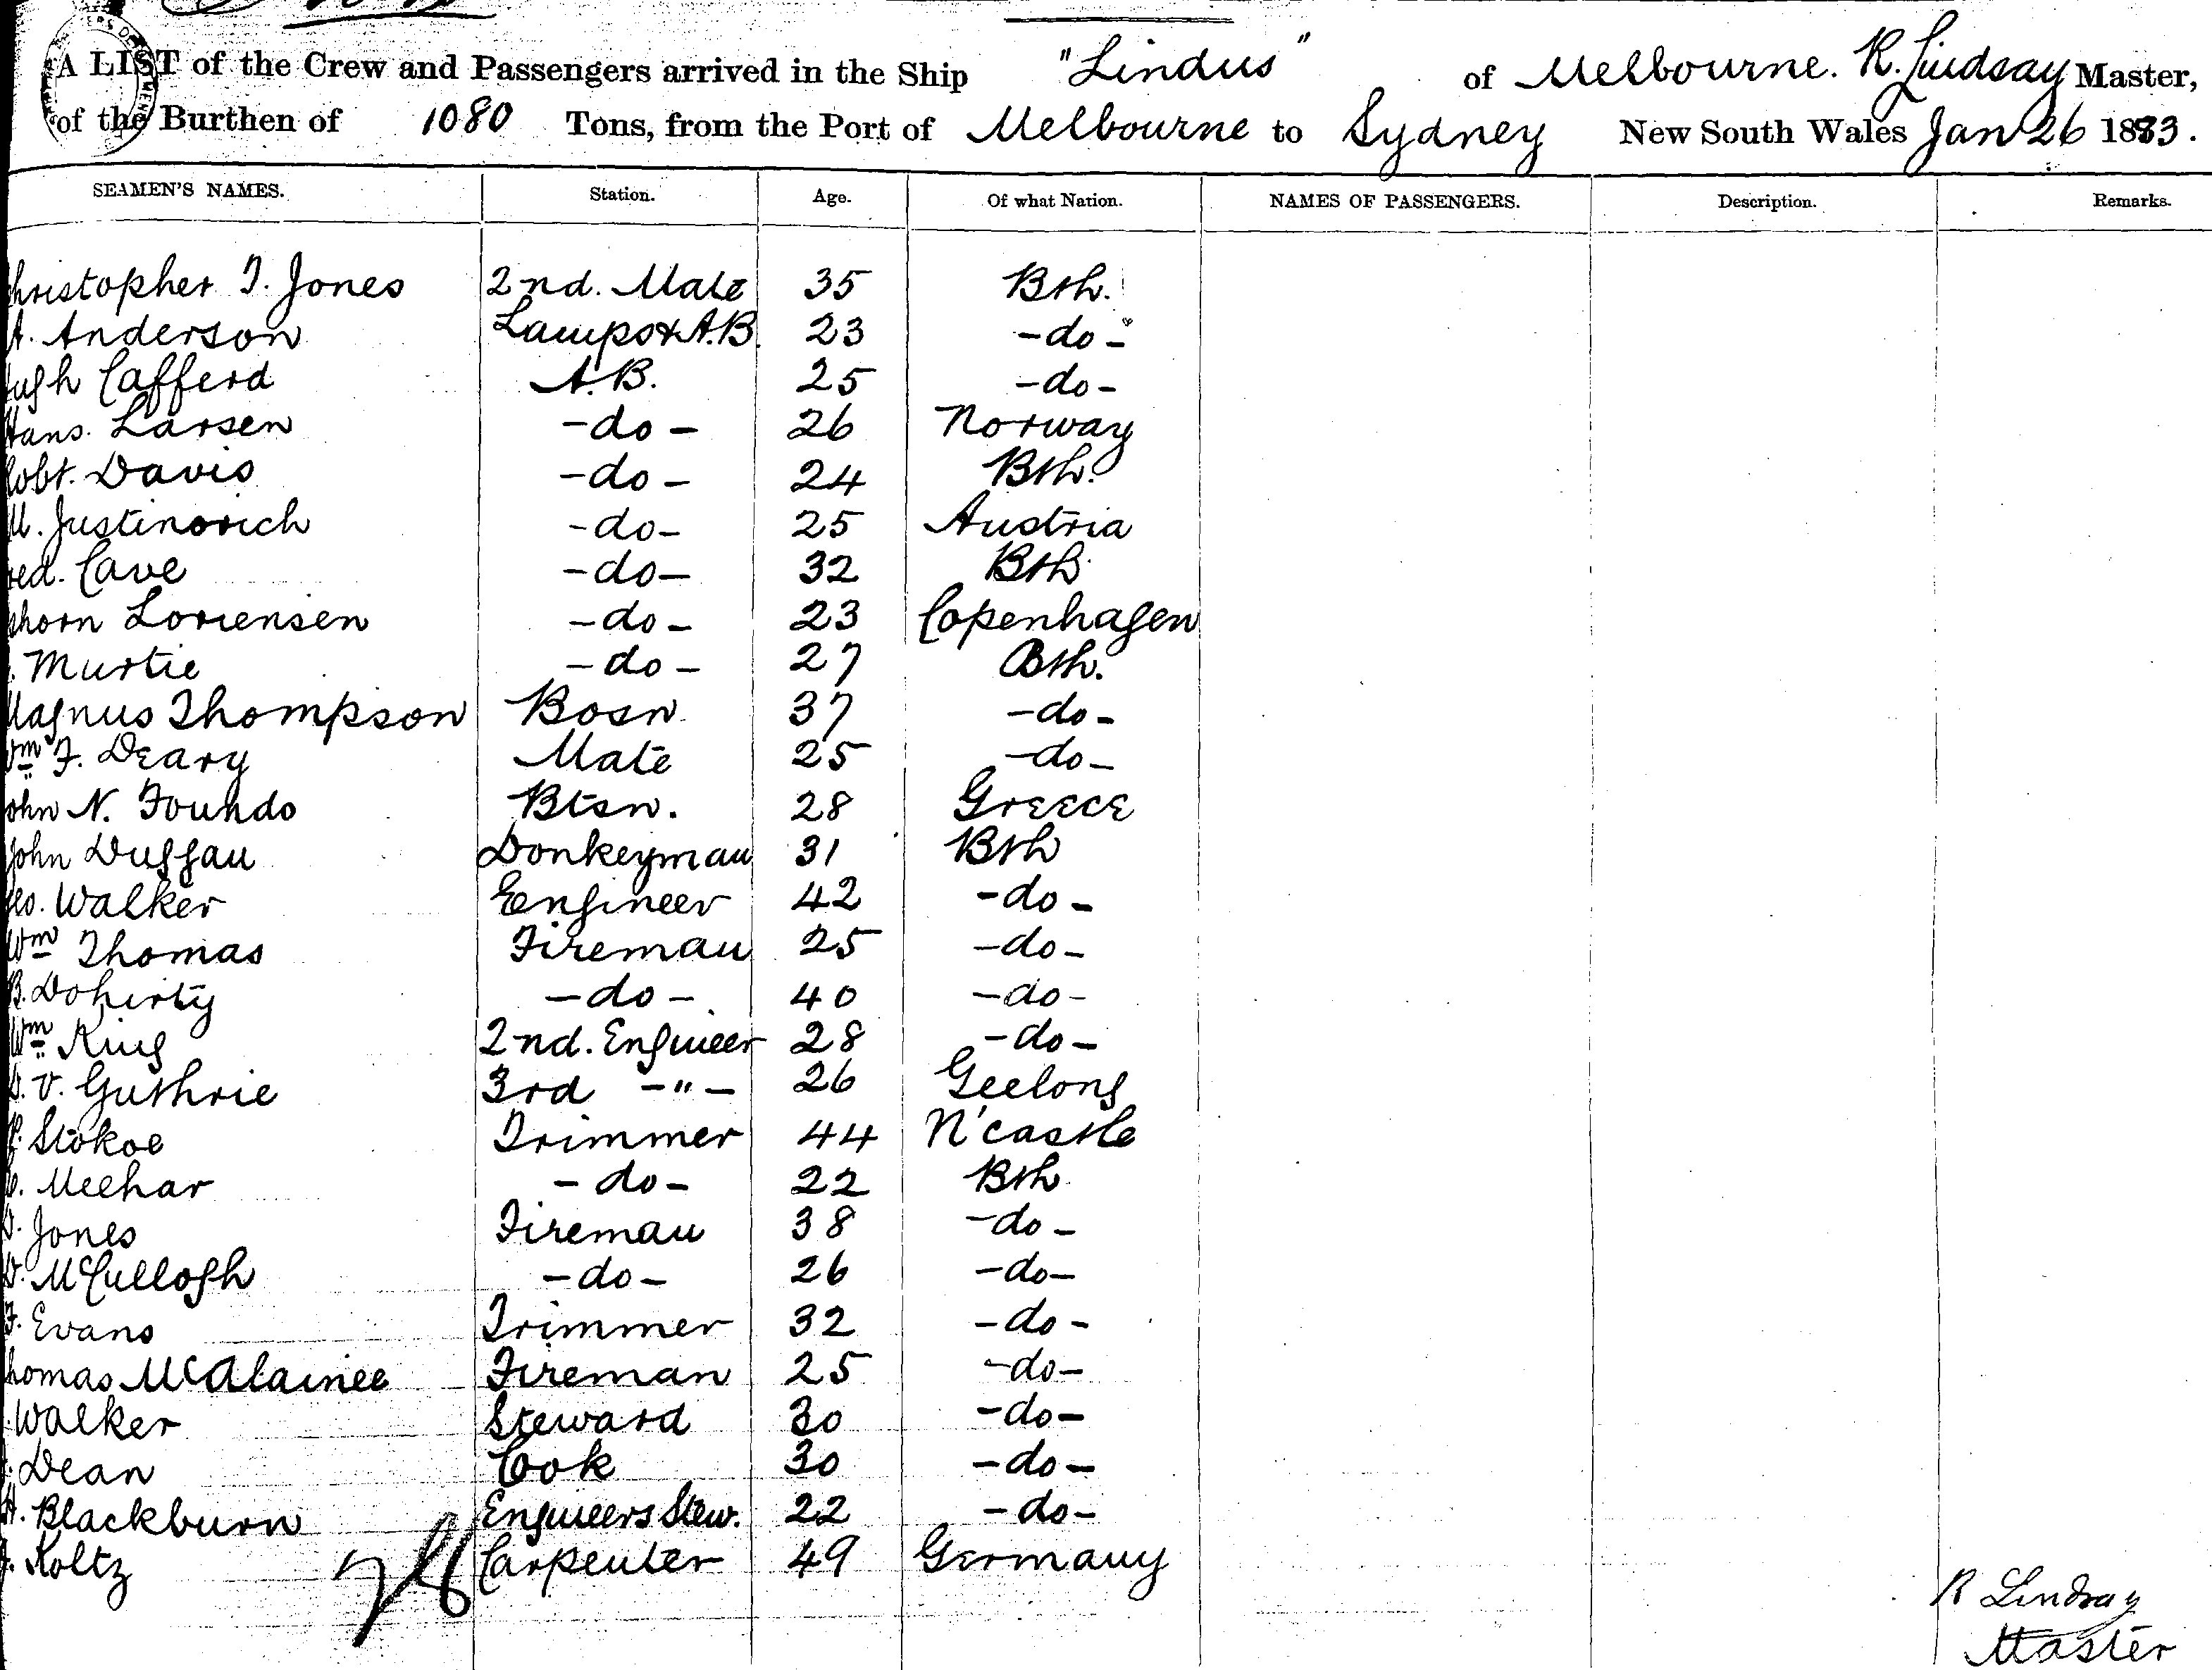 A LIST of the Crew and Passengers arrived in the Ship "Lindus" of Melbourne. R. Lindsay Master,
of the Burthen of 1080 Tons, from the Port of Melbourne to Sydney New South Wales Jan 26 1883.
SEAMEN'S NAMES. Station. Age. Of what Nation. NAMES OF PASSENGERS. Description. Remarks.
hristopher T. Jones 2nd. Mate 35 Bsh.
A. Anderson Lamps & A.B. 23 -do-
ugh Cafferd A.B. 25 -do-
Hans. Larsen -do- 26 Norway
Robt. Davis -do- 24 Bsh.
M. Justinovich -do- 25 Austria
red. Cave -do- 32 Bsh
horn Lorrensen -do- 23 Copenhagen
Murtie -do- 27 Bsh.
Magnus Thompson Bosn 37 -do-
Wm F. Deary Mate 25 -do-
John N. Foundo Btsn. 28 Greece
John Duggan Donkeyman 31 Bsh
Geo. Walker Engineer 42 -do-
Wm Thomas Fireman 25 -do-
B. Dohirty -do- 40 -do-
Wm King 2nd. Engineer 28 -do-
D. V. Guthrie 3rd -"- 26 Geelong
Stokoe Trimmer 44 N'castle
Meehar -do- 22 Bsh
Jones Fireman 38 -do-
D. McCullogh -do- 26 -do-
F. Evans Trimmer 32 -do-
homas McAlainee Fireman 25 -do-
Walker Steward 30 -do-
Dean Cook 30 -do-
H. Blackburn Engineers Stew. 22 -do-
Koltz Carpenter 49 Germany
R Lindsay
Master